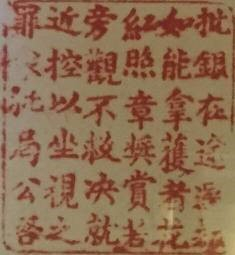 批銀在途遇
如能拿獲者花
紅照章獎賞者
旁觀不救决就
近控以坐視之
罪局公啓